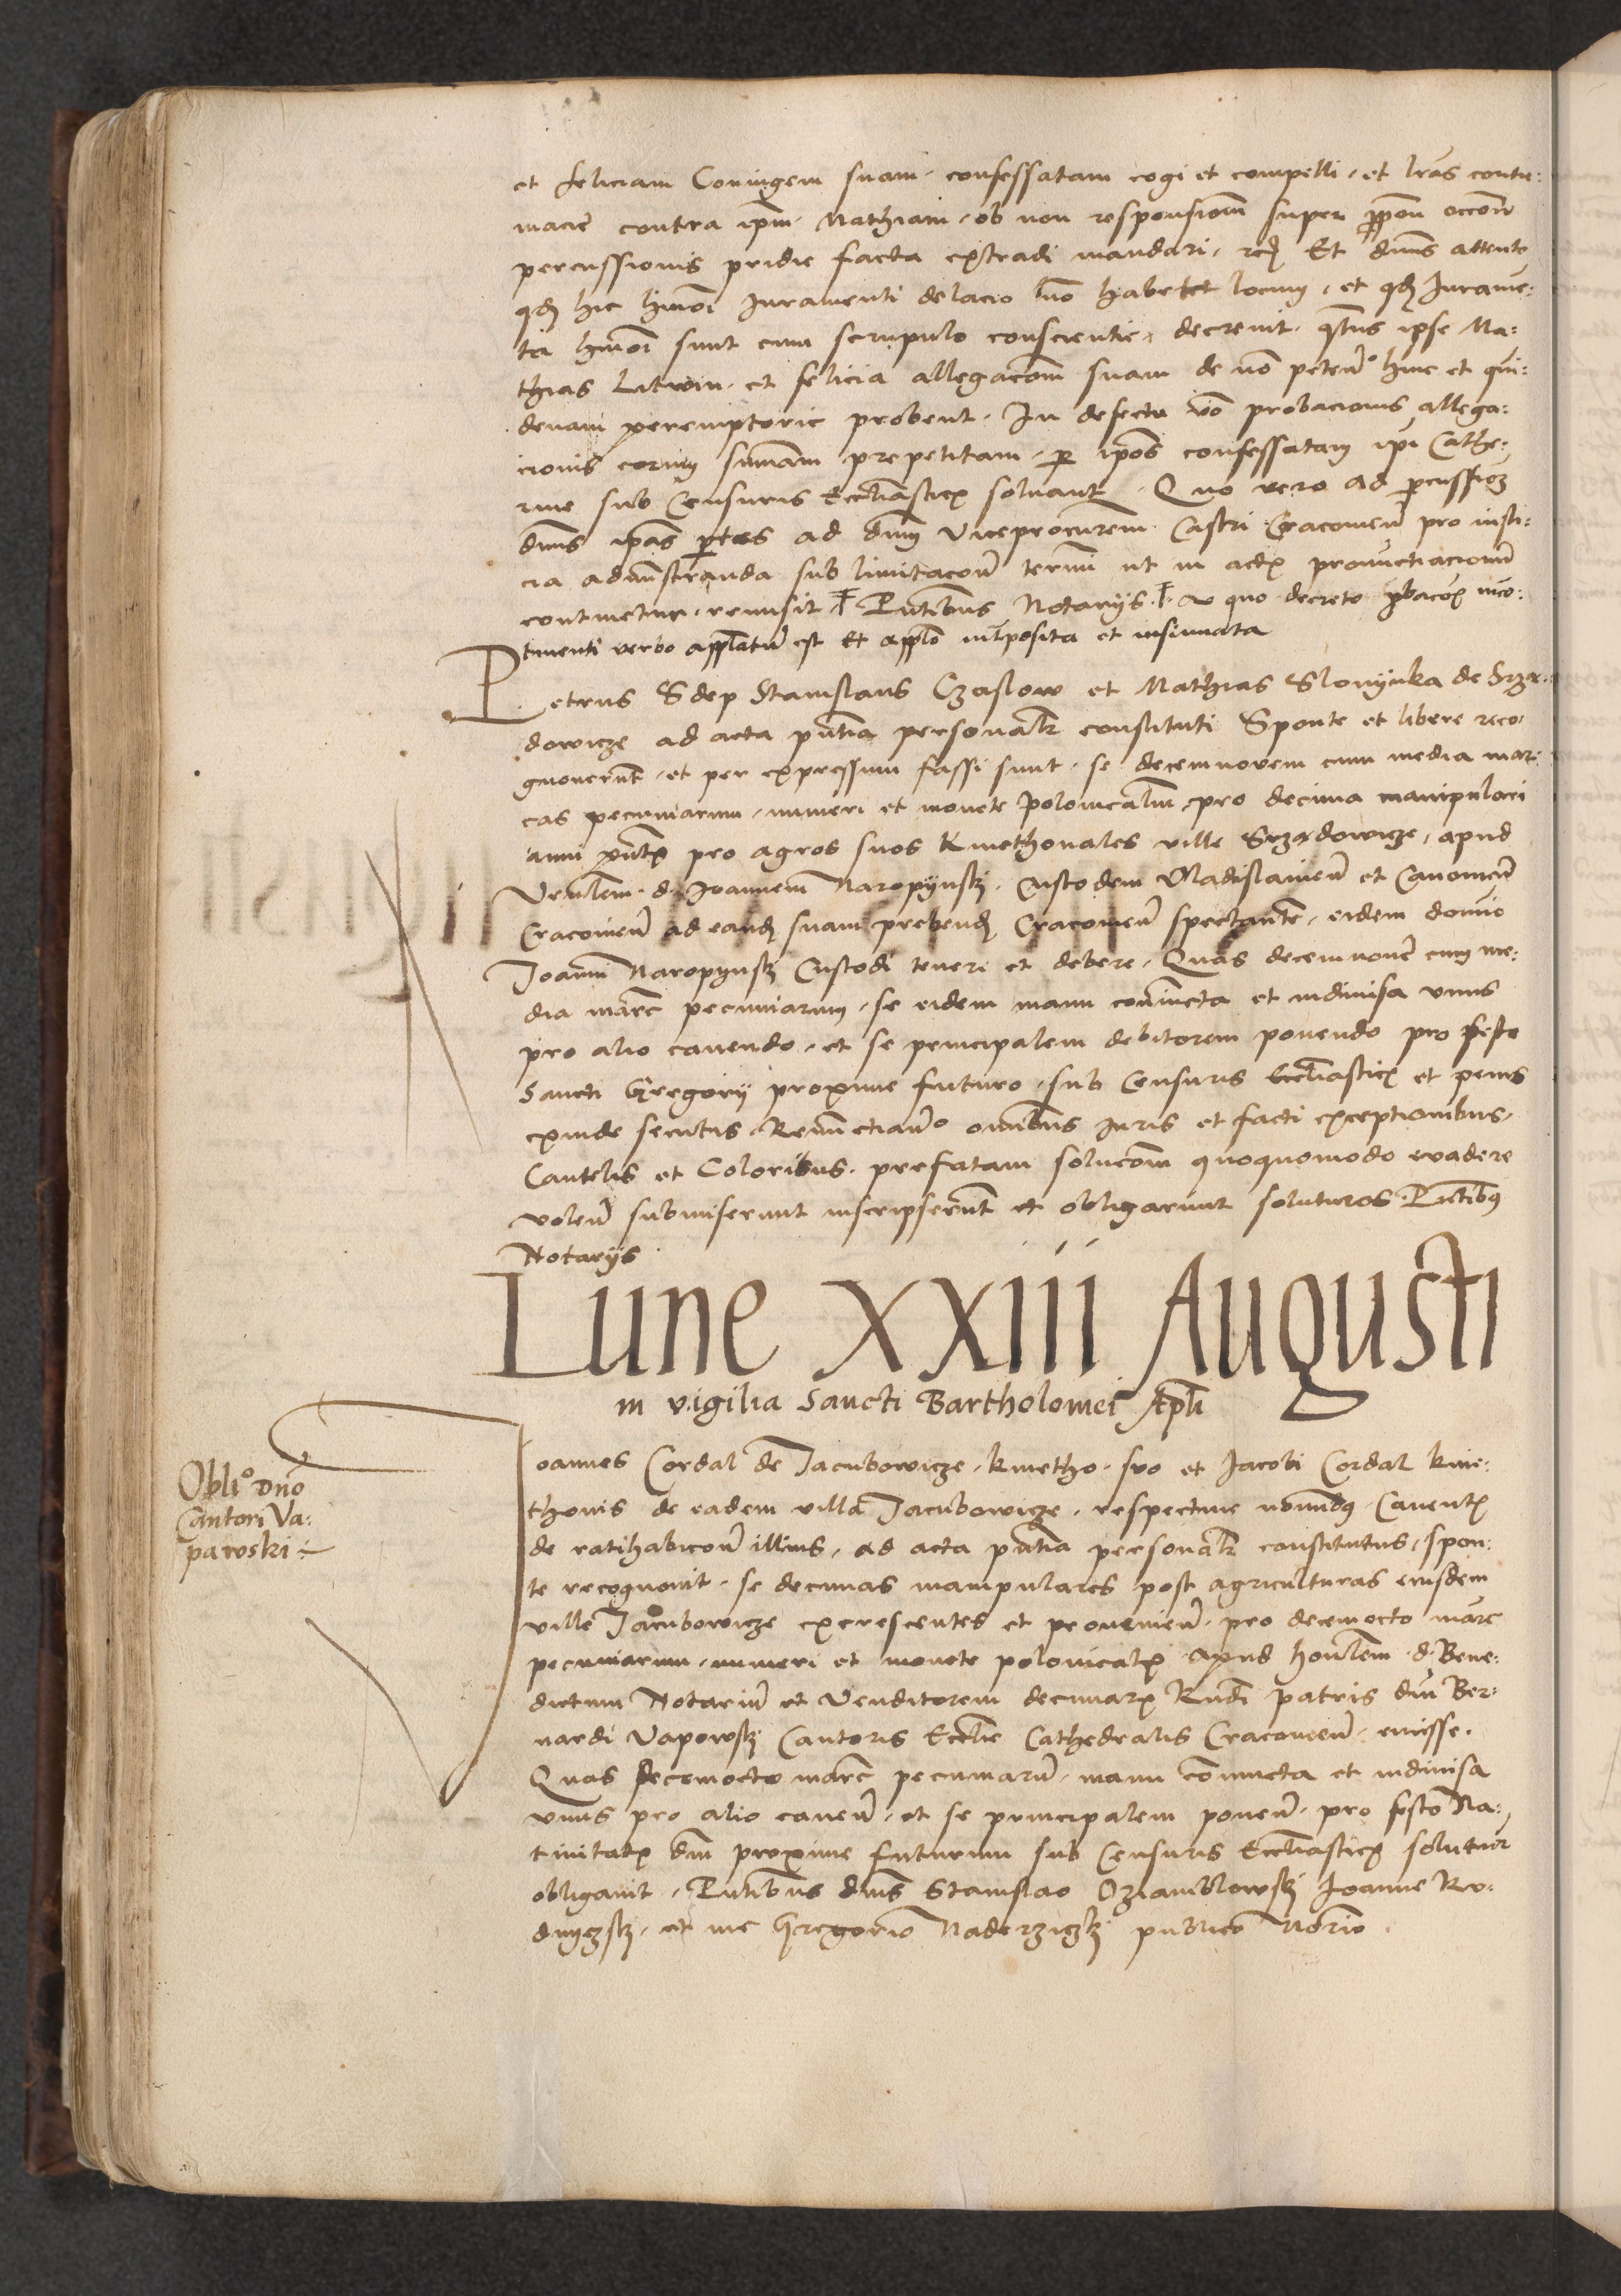 et feliciam Coniugem suam confessatam cogi et compelli et lras contu:
macie contra ipm Mathiam ob non responsiom super ppon occon
percussionis pridie facta extradi mandari rcq Et dnus attento
qd hic hmoi Iuramenti delacio no habetet locum et qd Iurame:
ta hmoi sunt cum scrupulo conscientie decrevit qtus ipse Ma:
thias Litwin et felicia allegacom suam de no peten hinc et qui:
denam peremptorie probent In defectu vo probacionis allega:
cionis eorum summam prepetitam per ipos confessatam ipi Cathe:
rine sub Censuris Eccliasticis solvant Quo vero ad pcussiom
dnus ipas ptes ad dnm Viceprocurem Castri Cracovien pro iusti:
cia admstranda sub limitacom termi ut in actis pronuctiacionu
continetur remisit Pntibus Notarijs a quo decreto pbacois inco:
tinenti verbo applatum est Et applo interposita et insinuata
Petrus Sdep Stanislaus Czaslow et Mathias Slonynka de Srza:
dowicze ad acta pntia personalr constituti Sponte et libere reco:
gnoverunt et per expressum fassi sunt se decemnovem cum media mar:
cas pecuniarum numeri et monete polonicalium pro decima manipulari
anni pntis pro agros suos kmethonales ville Srzadowicze apud
Venlem d Joannem Naropynski Custodem Vladislavien et Canonicu
Cracovien ad eand suam prebendam Cracovien spectante eidem domino
Joanni Naropynski Custodi teneri et debere Quas decemnove cum me:
dia marc pecuniarum se eidem manu coniuncta et indivisa unus
pro alio cavendo et se principalem debitorem ponendo pro festo
Sancti Gregorij proxime futuro sub Censuris Eccliasticis et penis
exinde secutis Renunctiando omnibus iuris et facti exceptionibus
Cautelis et Coloribus prefatam solucom quoquomodo evadere
volen submiserunt inscripserunt et obligarunt soluturos Pntibus
Notarijs
Lune XXIII Augusti
in vigilia Sancti Bartholomei Apli
Joannes Cordal de Jacubowicze kmetho suo et Jacobi Cordal kme:
thonis de eadem villa Jacubowicze respective nominibus Caventis
de ratihabicone illius ad acta pntia personalr constitutus spon:
te recognovit se decimas manipulares post agriculturas eiusdem
ville Jacubowicze excrescentes et provenien pro decemocto marc
pecuniarum numeri et monete polonicalis apud honlem d Bene:
dictum Notarium et Venditorem decimaru Rndi patris dni Ber:
nardi Vapowski Cantoris Ecclie Cathedralis Cracovien emisse
Quas decemocto marc pecuniaru manu coniuncta et indivisa
unus pro alio caven et se principalem ponen pro festo Na:
tivitatis dni proxime futurum sub Censuris Eccliasticis solutur
obligavit Pntibus dnis Stanislao Dziamblowski Joanne Ru:
dnyczski et me Gregorio Naderziczki publico Notrio
Oblio dno
Cantori Va:
powski